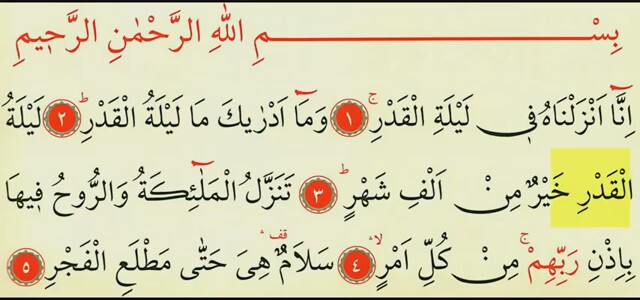 بِسْمِ اللّٰهِ الرَّحْمٰنِ الرَّحٖيمِ
اِنَّٓا اَنْزَلْنَاهُ فٖى لَيْلَةِ الْقَدْرِۚ ﴿١﴾ وَمَٓا اَدْرٰيكَ مَا لَيْلَةُ الْقَدْرِۜ ﴿٢﴾ لَيْلَةُ
الْقَدْرِ خَيْرٌ مِنْ اَلْفِ شَهْرٍۜ ﴿٣﴾ تَنَزَّلُ الْمَلٰٓئِكَةُ وَالرُّوحُ فٖيهَا
بِاِذْنِ رَبِّهِمْۚ مِنْ كُلِّ اَمْرٍۙ ﴿٤﴾ سَلَامٌ۠ هِىَ حَتّٰى مَطْلَعِ الْفَجْرِ ﴿٥﴾